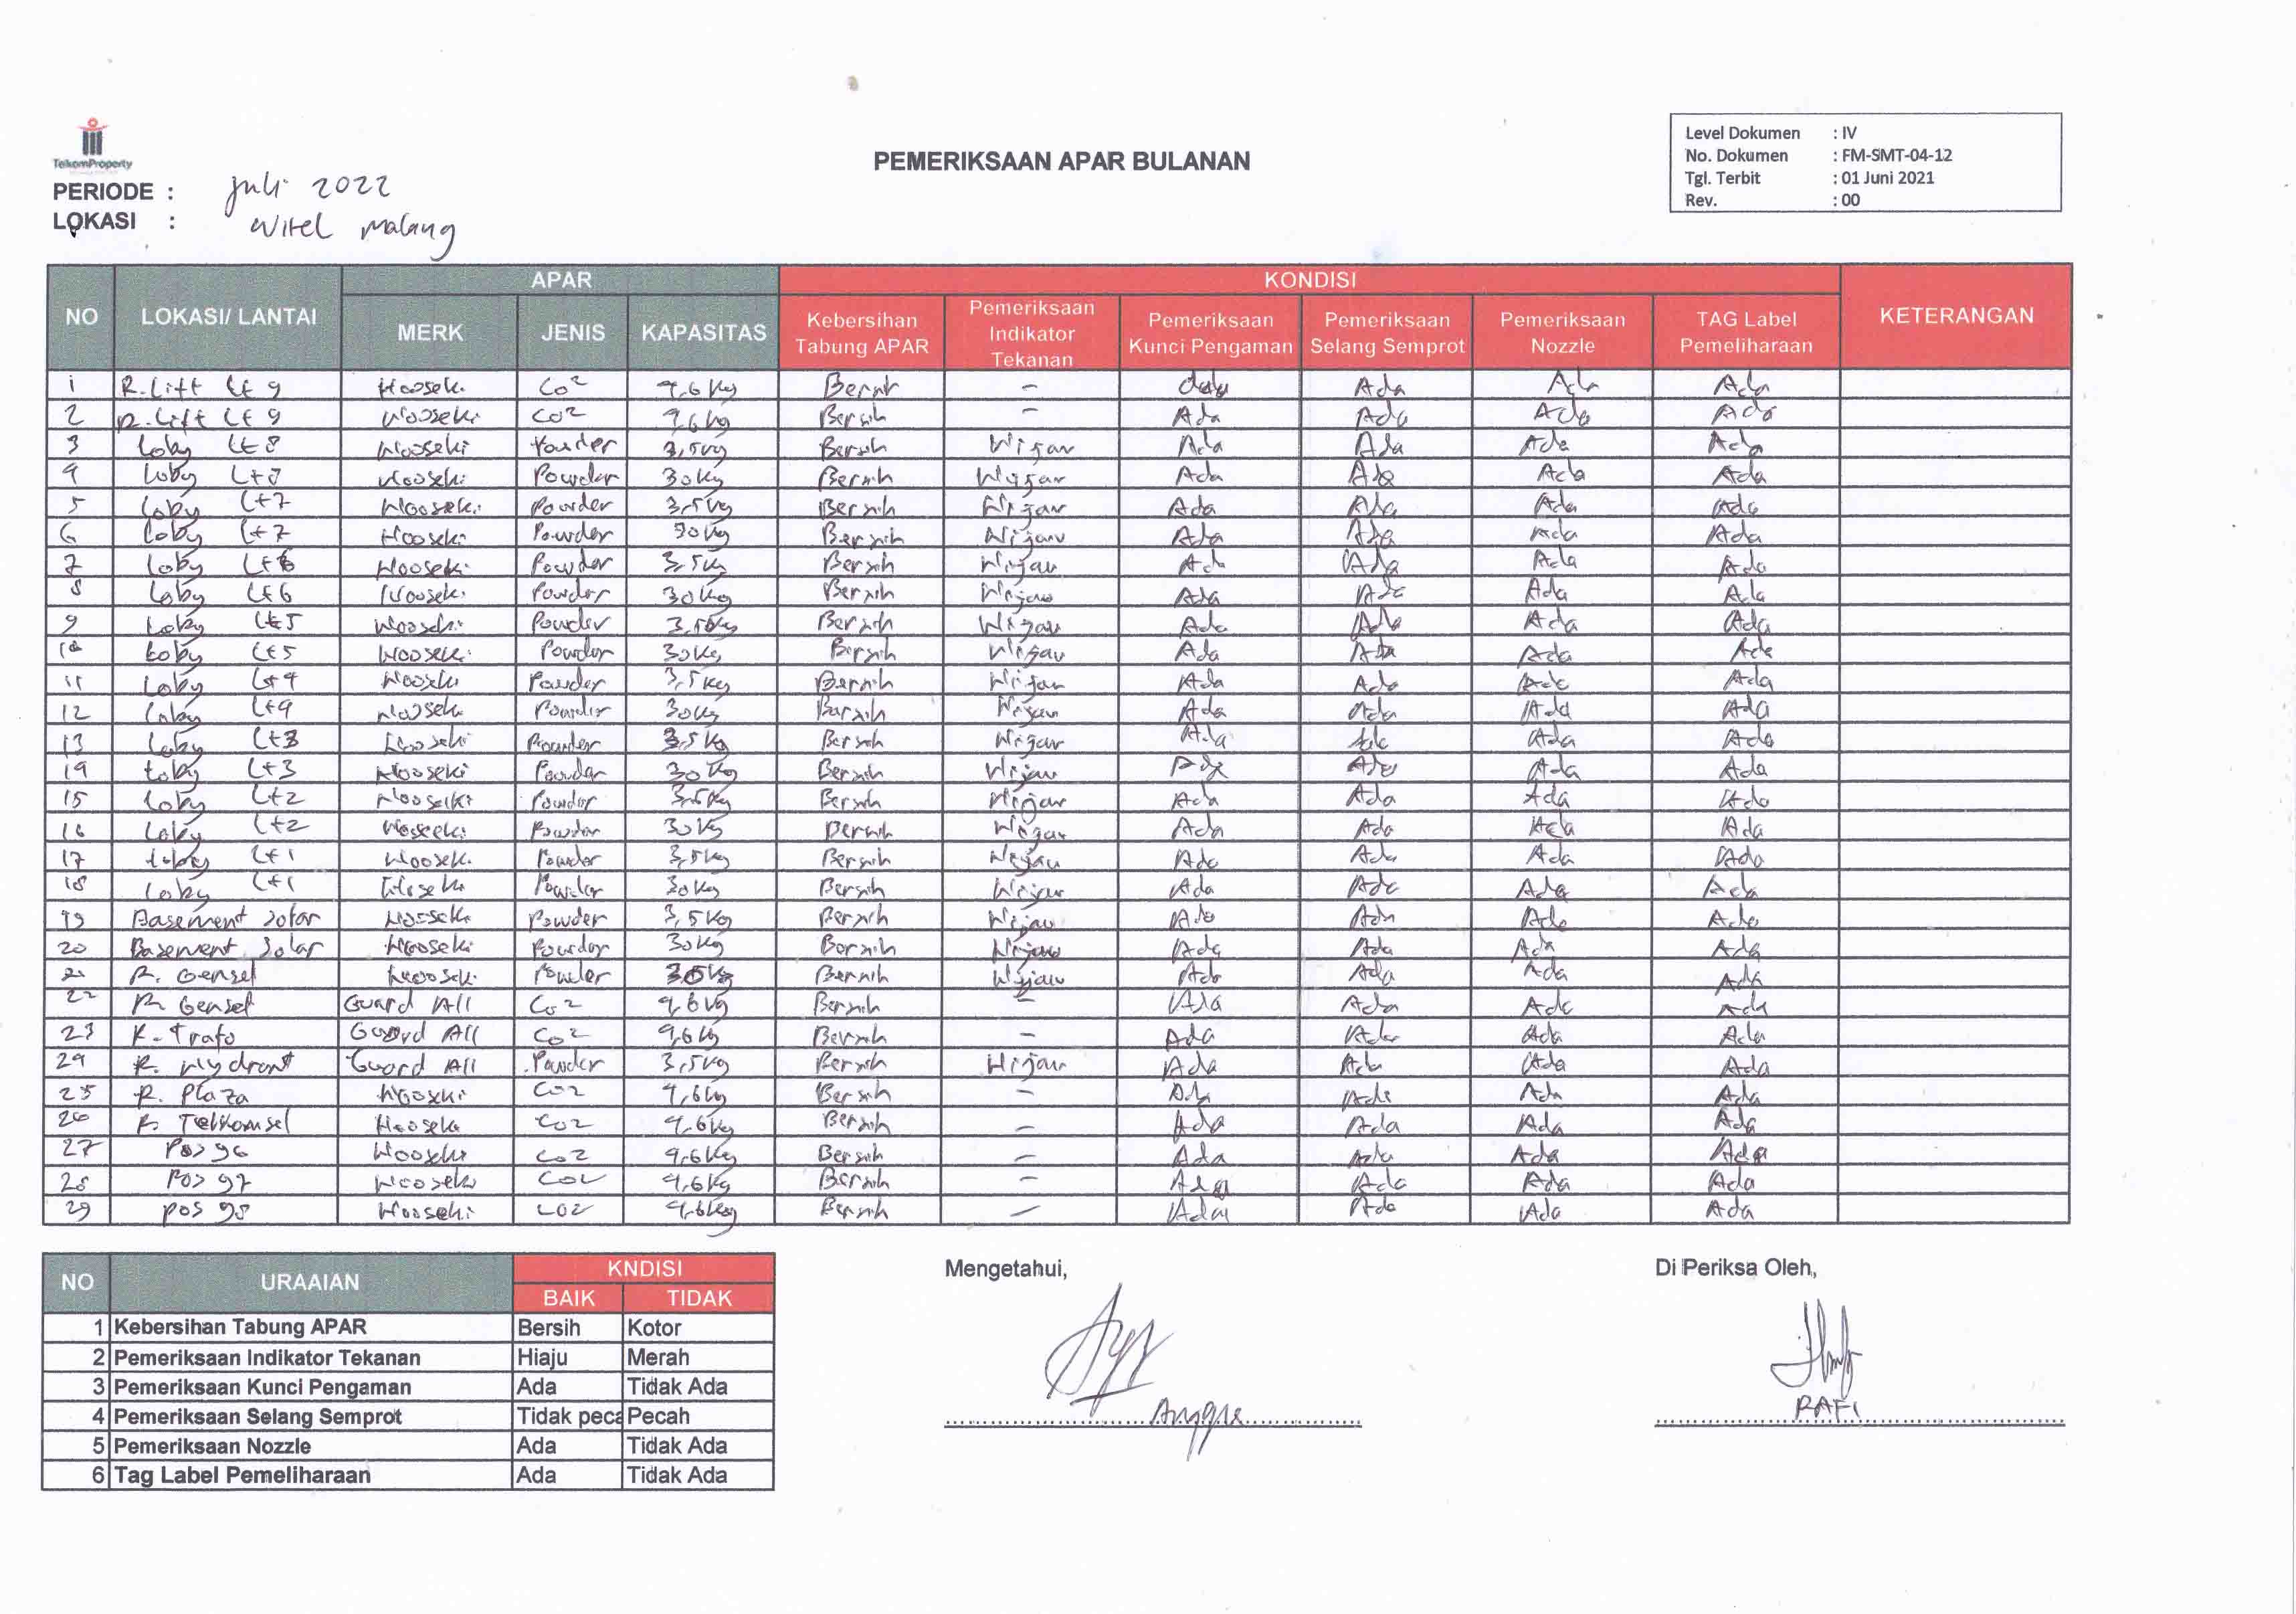 TelkomProperty
PEMERIKSAAN APAR BULANAN
Level Dokumen : IV
No. Dokumen : FM-SMT-04-12
Tgl. Terbit : 01 Juni 2021
Rev. : 00
PERIODE : Juli 2022
LOKASI : Witel Malang
NO LOKASI/ LANTAI APAR KONDISI KETERANGAN
MERK JENIS KAPASITAS Kebersihan Tabung APAR Pemeriksaan Indikator Tekanan Pemeriksaan Kunci Pengaman Pemeriksaan Selang Semprot Pemeriksaan Nozzle TAG Label Pemeliharaan
1 R. Lift Lt 9 Hooseki Co2 4,6 Kg Bersih - Ada Ada Ada Ada
2 R. Lift Lt 9 Hooseki Co2 4,6 Kg Bersih - Ada Ada Ada Ada
3 Loby Lt 8 Hooseki Powder 3,5 Kg Bersih Hijau Ada Ada Ada Ada
4 Loby Lt 8 Hooseki Powder 30 Kg Bersih Hijau Ada Ada Ada Ada
5 Loby Lt 7 Hooseki Powder 3,5 Kg Bersih Hijau Ada Ada Ada Ada
6 Loby Lt 7 Hooseki Powder 30 Kg Bersih Hijau Ada Ada Ada Ada
7 Loby Lt 6 Hooseki Powder 3,5 Kg Bersih Hijau Ada Ada Ada Ada
8 Loby Lt 6 Hooseki Powder 30 Kg Bersih Hijau Ada Ada Ada Ada
9 Loby Lt 5 Hooseki Powder 3,5 Kg Bersih Hijau Ada Ada Ada Ada
10 Loby Lt 5 Hooseki Powder 30 Kg Bersih Hijau Ada Ada Ada Ada
11 Loby Lt 4 Hooseki Powder 3,5 Kg Bersih Hijau Ada Ada Ada Ada
12 Loby Lt 4 Hooseki Powder 30 Kg Bersih Hijau Ada Ada Ada Ada
13 Loby Lt 3 Hooseki Powder 3,5 Kg Bersih Hijau Ada Ada Ada Ada
14 Loby Lt 3 Hooseki Powder 30 Kg Bersih Hijau Ada Ada Ada Ada
15 Loby Lt 2 Hooseki Powder 3,5 Kg Bersih Hijau Ada Ada Ada Ada
16 Loby Lt 2 Hooseki Powder 30 Kg Bersih Hijau Ada Ada Ada Ada
17 Loby Lt 1 Hooseki Powder 3,5 Kg Bersih Hijau Ada Ada Ada Ada
18 Loby Lt 1 Powder 30 Kg Bersih Hijau Ada Ada Ada Ada
19 Basement Solar Hooseki Powder 3,5 Kg Bersih Hijau Ada Ada Ada Ada
20 Basement Solar Hooseki Powder 30 Kg Bersih Hijau Ada Ada Ada Ada
21 R. Genset Hooseki Powder Bersih Hijau Ada Ada Ada Ada
22 R. Genset Guard All Co2 4,6 Kg Bersih - Ada Ada Ada Ada
23 R. Trafo Guard All Co2 4,6 Kg Bersih - Ada Ada Ada Ada
24 R. Hydrant Guard All Powder 3,5 Kg Bersih Hijau Ada Ada Ada Ada
25 R. Plaza Hooseki Co2 4,6 Kg Bersih - Ada Ada Ada Ada
26 R. Telkomsel Hooseki Co2 4,6 Kg Bersih - Ada Ada Ada Ada
27 Pos 96 Hooseki Co2 4,6 Kg Bersih - Ada Ada Ada Ada
28 Pos 97 Hooseki Co2 4,6 Kg Bersih - Ada Ada Ada Ada
29 Pos 98 Hooseki CO2 4,6 Kg Bersih - Ada Ada Ada Ada
NO URAAIAN KNDISI
BAIK TIDAK
1 Kebersihan Tabung APAR Bersih Kotor
2 Pemeriksaan Indikator Tekanan Hiaju Merah
3 Pemeriksaan Kunci Pengaman Ada Tidak Ada
4 Pemeriksaan Selang Semprot Tidak peca Pecah
5 Pemeriksaan Nozzle Ada Tidak Ada
6 Tag Label Pemeliharaan Ada Tidak Ada
Mengetahui,
Di Periksa Oleh,
RAFI